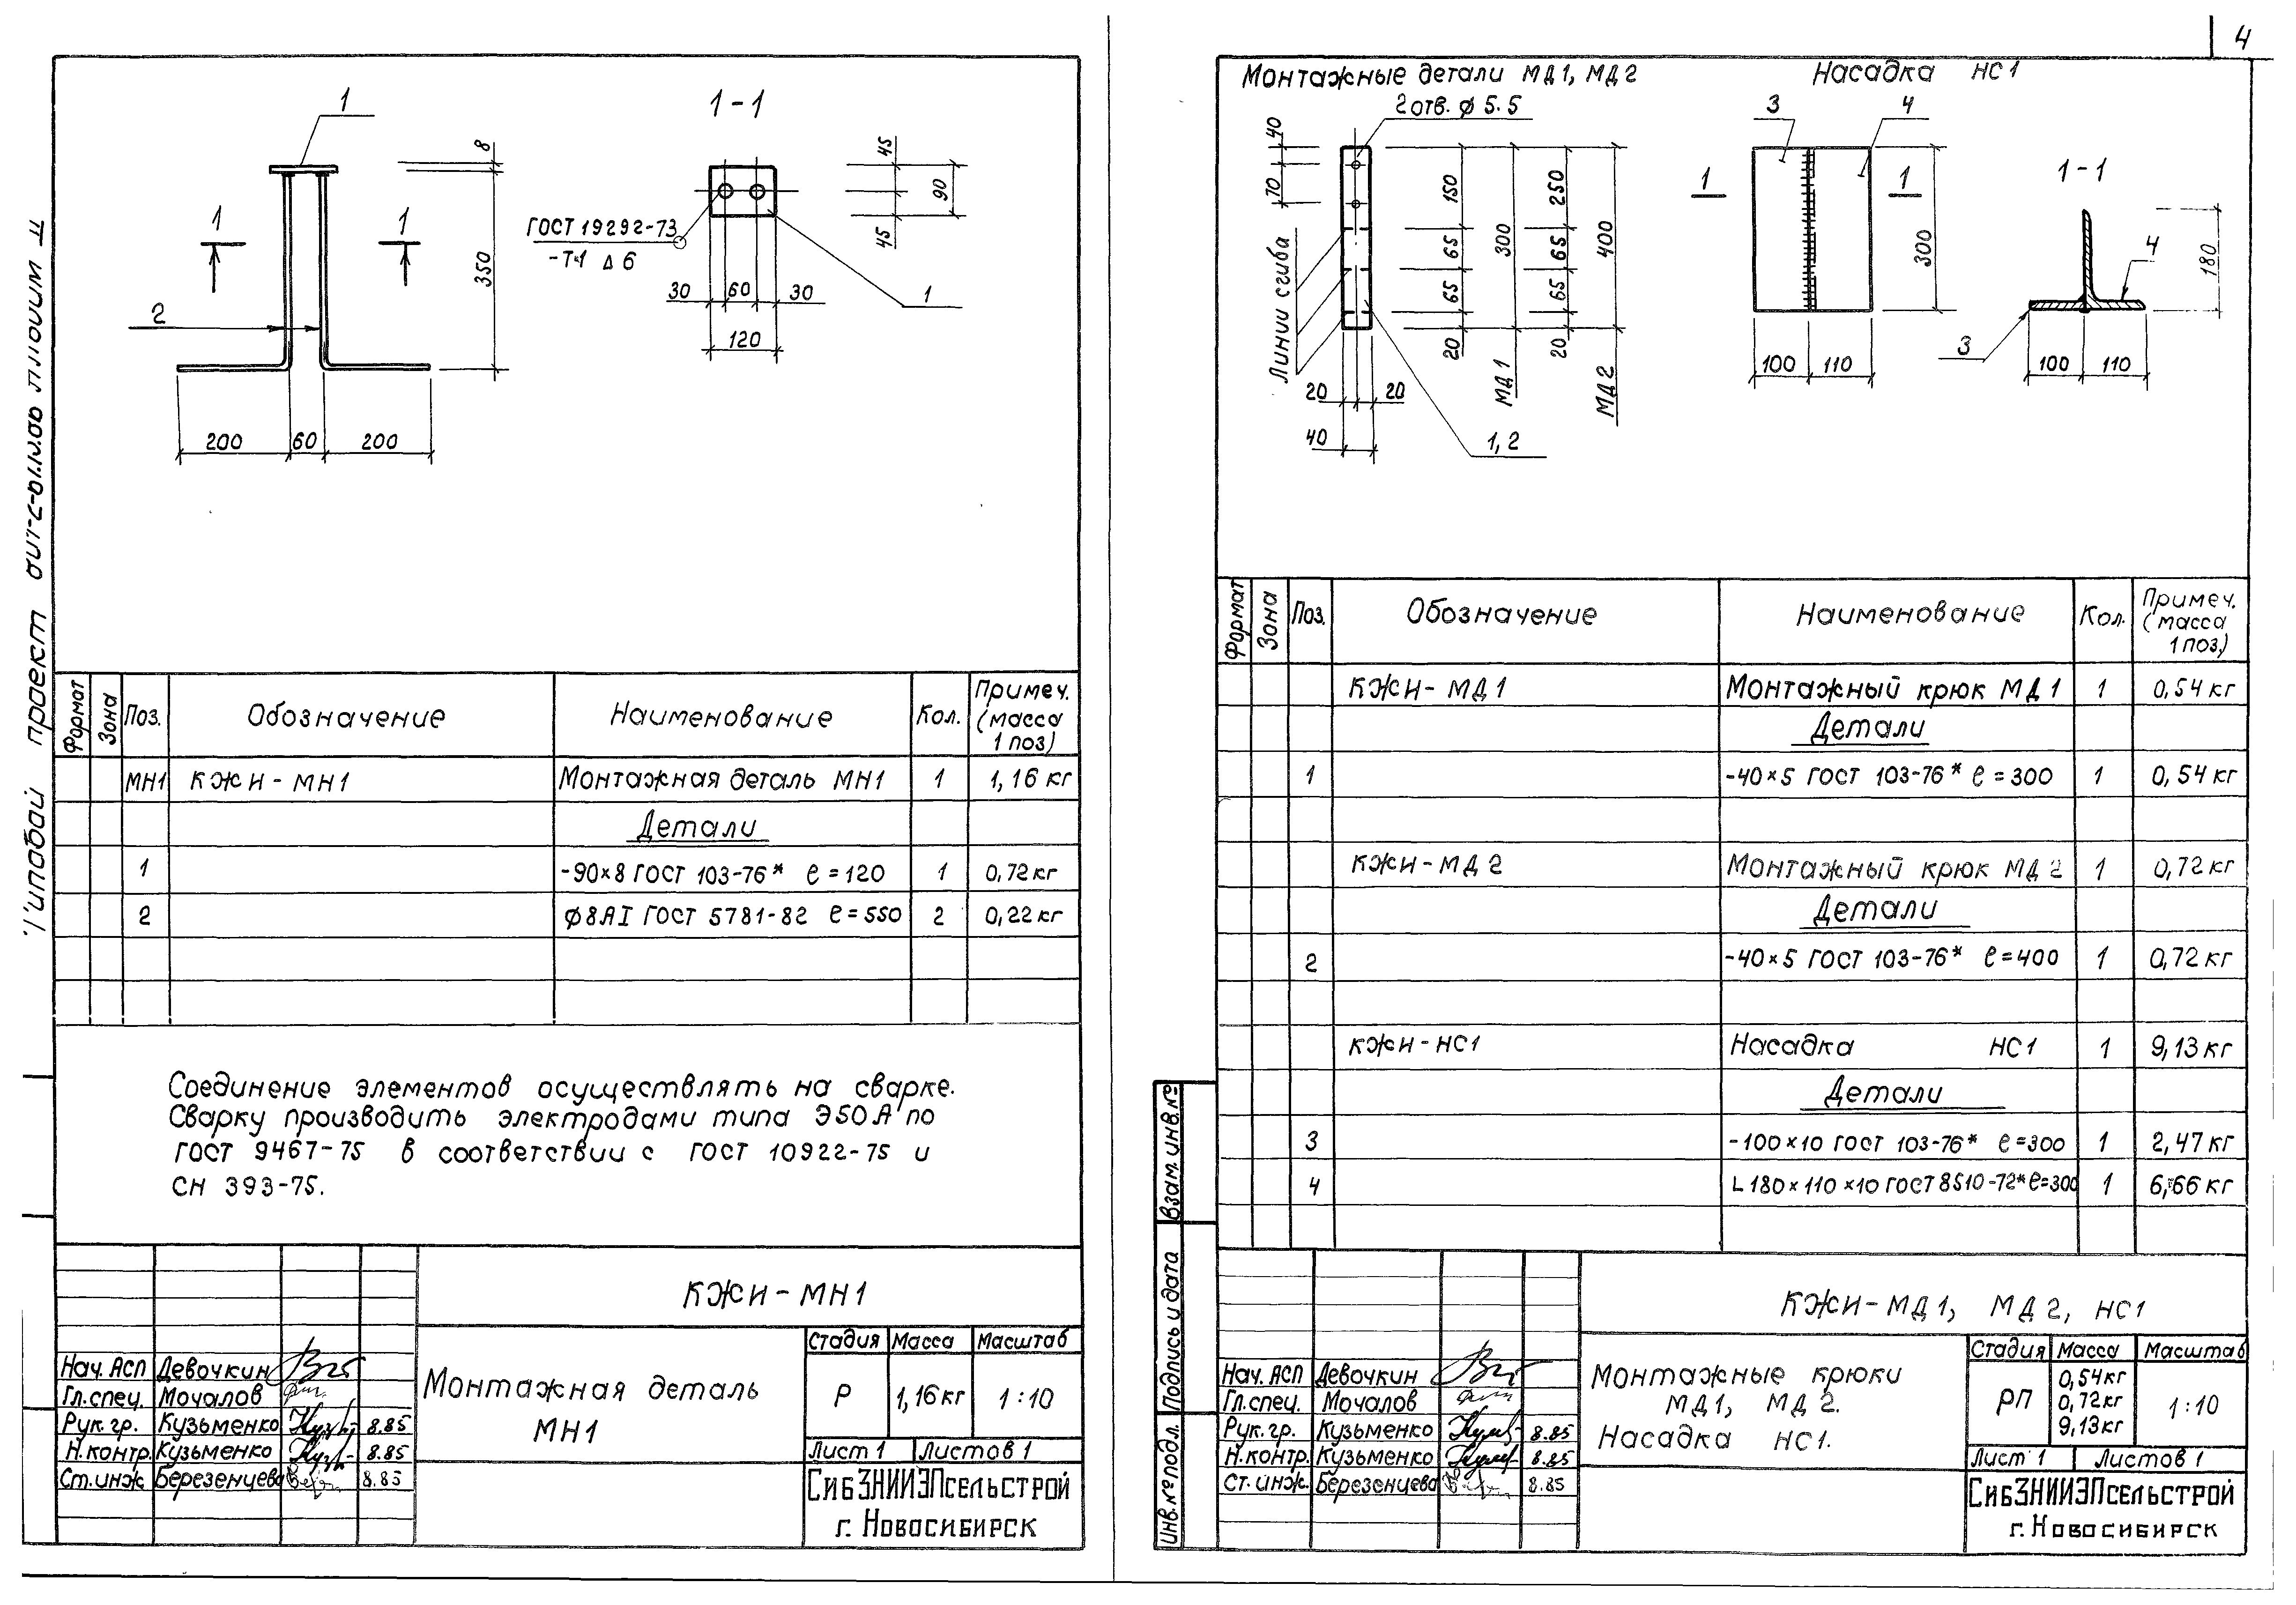 4
Типовой проект
1
8
350
1
1
2
200
60
200
1-1
45
45
90
ГОСТ 19292-73
-Т-1 Δ 6
30
60
30
120
1
Формат
Зона
Поз.
Обозначение
Наименование
Кол.
Примеч. (масса 1 поз)
МН1 КЖИ-МН1 Монтажная деталь МН1 1 1,16 кг
Детали
1 -90×8 ГОСТ 103-76* ℓ=120 1 0,72 кг
2 Ф8АI ГОСТ 5781-82 ℓ=550 2 0,22 кг
Соединение элементов осуществлять на сварке.
Сварку производить электродами типа Э50А по
ГОСТ 9467-75 в соответствии с ГОСТ 10922-75 и
СН 393-75.
КЖИ-МН1
Стадия Масса Масштаб
Монтажная деталь
МН1
Р 1,16кг 1:10
Лист 1 Листов 1
СибЗНИИЭПсельстрой
г. Новосибирск
Нач. АСП Девочкин
Гл. спец. Мочалов
Рук. гр. Кузьменко 8.85
Н.контр. Кузьменко 8.85
Ст. инж Березенцева 8.85
Монтажные детали МД1, МД2
2 отв. ф 5.5
40
70
Линии сгиба
150
65
65
20
300
МД1
250
65
65
20
400
МД2
20
20
40
1, 2
Насадка НС1
3
4
1
1
300
100
110
1-1
4
180
3
100
110
Формат
Зона
Поз.
Обозначение
Наименование
Кол.
Примеч. (масса 1 поз.)
КЖИ-МД1 Монтажный крюк МД1 1 0,54 кг
Детали
1 -40×5 ГОСТ 103-76* ℓ=300 1 0,54 кг
КЖИ-МД2 Монтажный крюк МД2 1 0,72 кг
Детали
2 -40×5 ГОСТ 103-76* ℓ=400 1 0,72 кг
КЖИ-НС1 Насадка НС1 1 9,13 кг
Детали
3 -100×10 ГОСТ 103-76* ℓ=300 1 2,47 кг
4 L180×110×10 ГОСТ 8510-72* ℓ=300 1 6,66 кг
Взам. инв.№
Подпись и дата
Инв.№ подл.
КЖИ-МД1, МД2, НС1
Стадия Масса Масштаб
Монтажные крюки
МД1, МД2.
Насадка НС1.
РП
0,54кг
0,72кг
9,13кг
1:10
Лист 1 Листов 1
СибЗНИИЭПсельстрой
г. Новосибирск
Нач. АСП Девочкин
Гл. спец. Мочалов
Рук. гр. Кузьменко 8.85
Н.контр. Кузьменко 8.85
Ст. инж. Березенцева 8.85